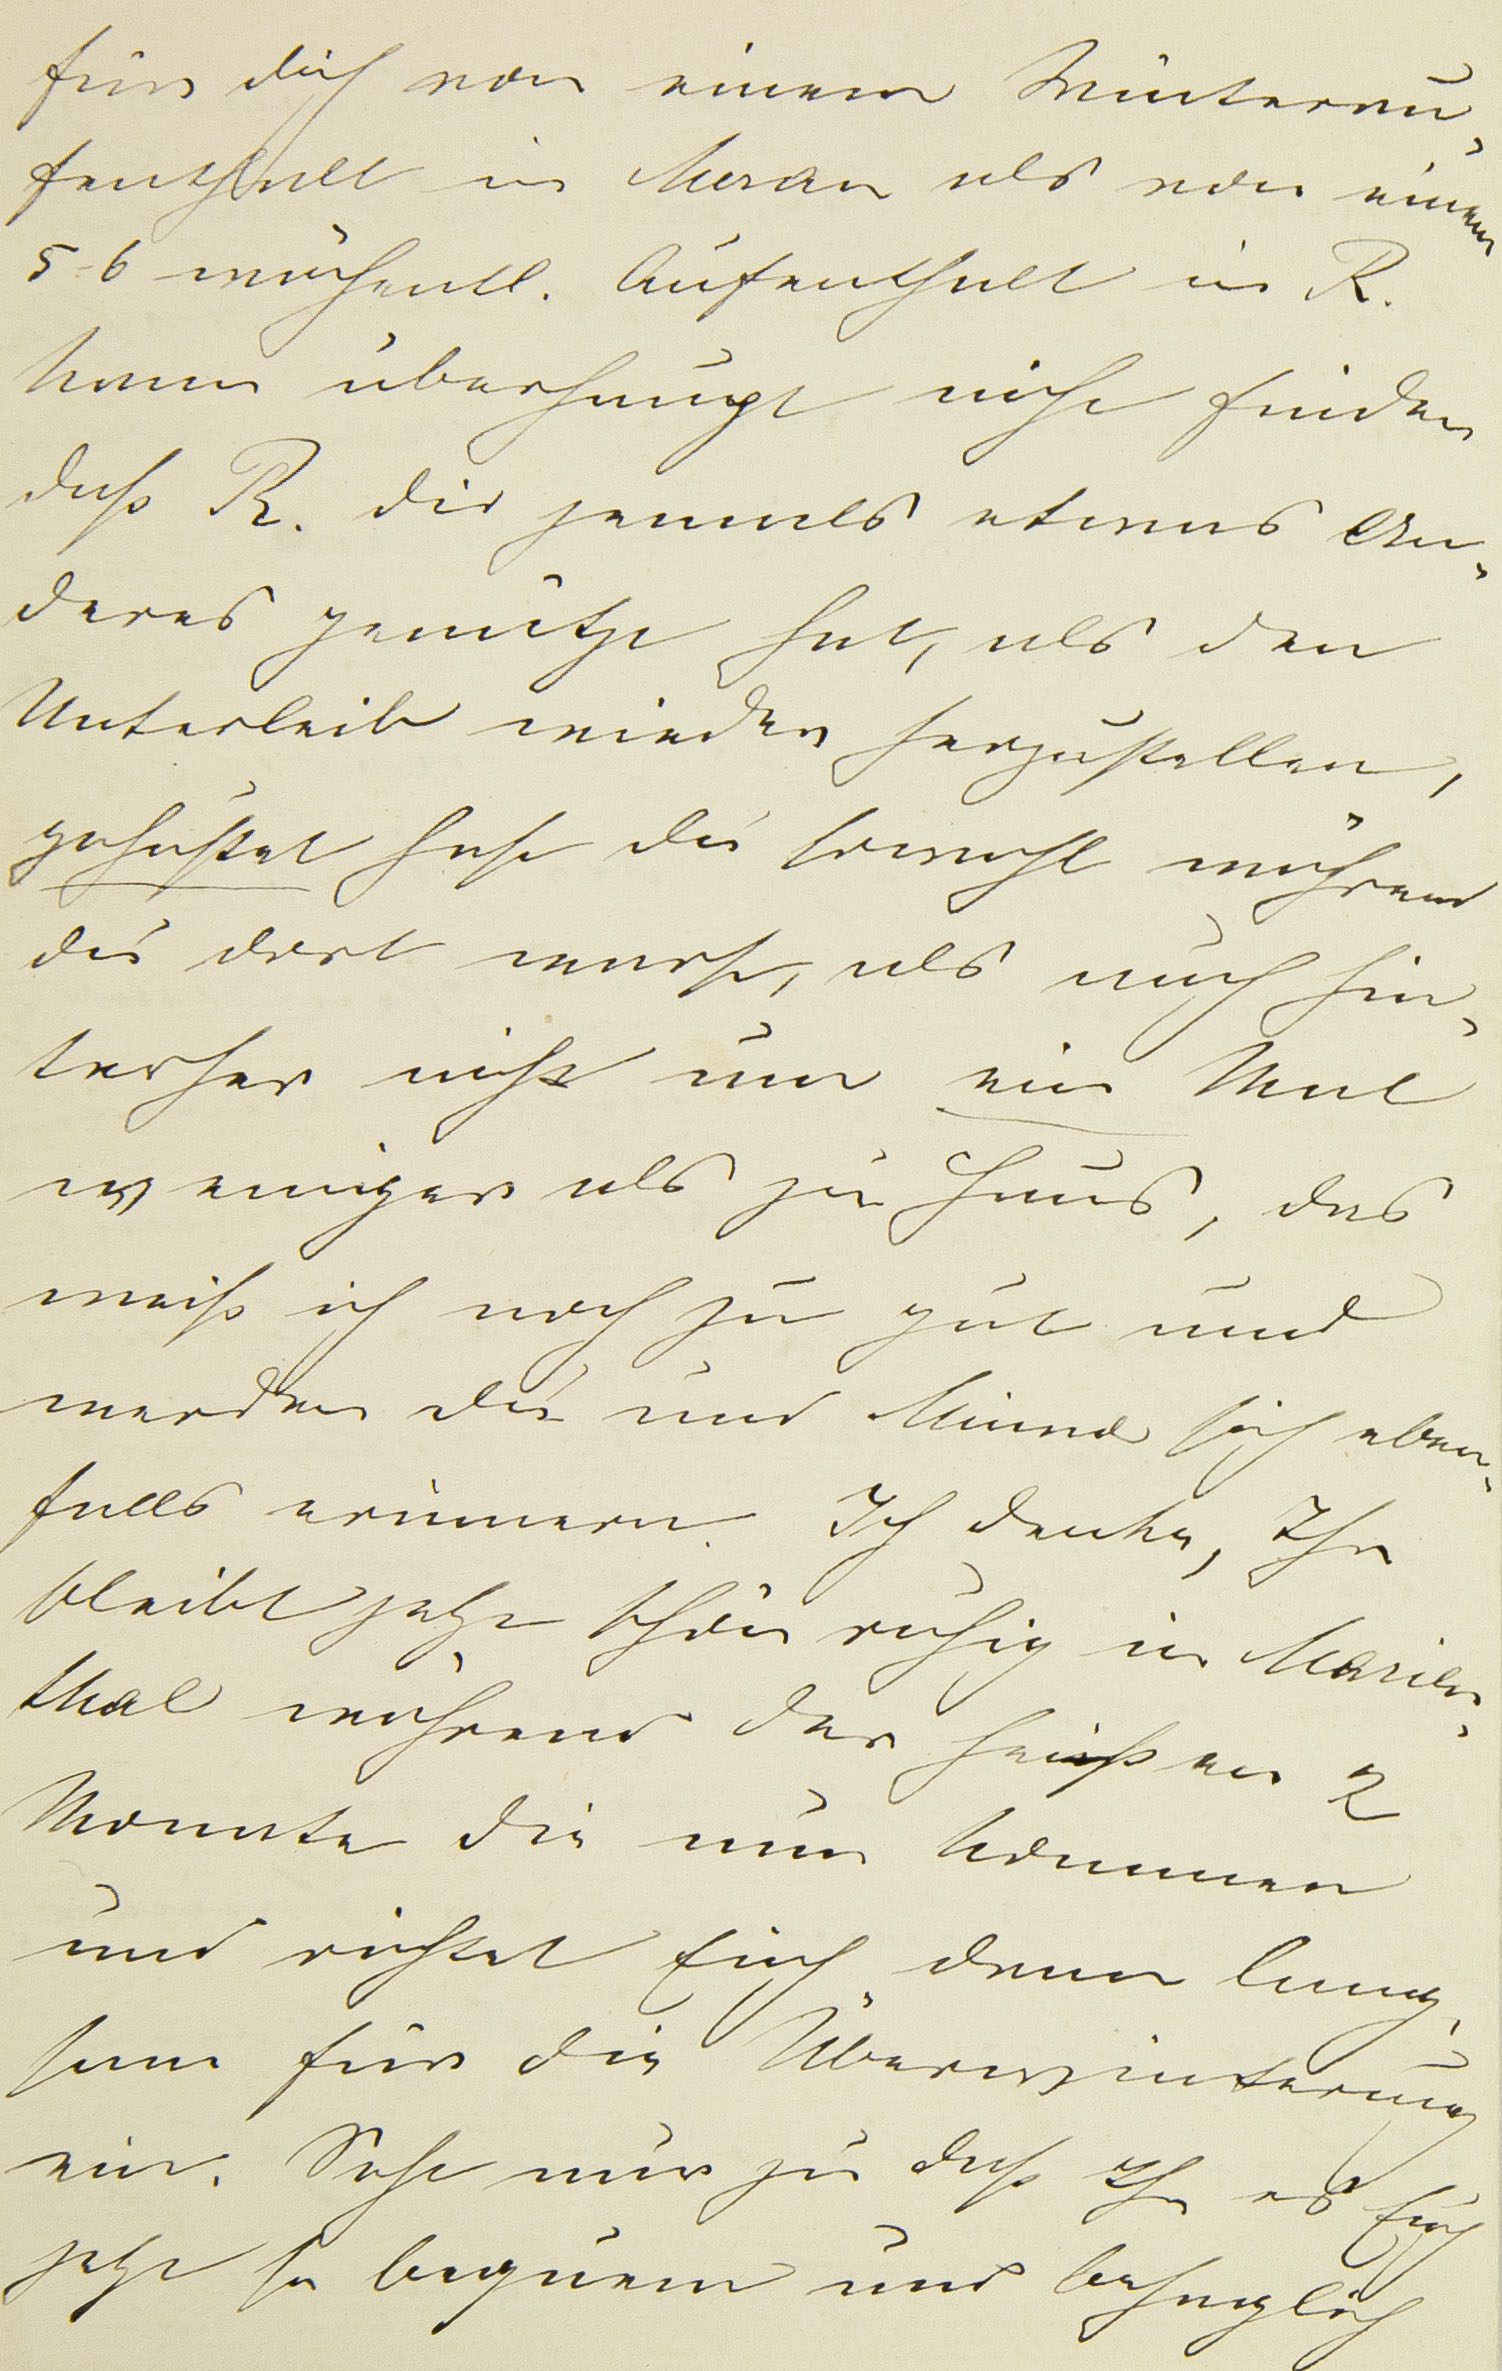 für dich von einem Winterau-
fenthalt in Meran als von einem
5-6 wöchentl. Aufenthalt in R.
kann überhaupt nicht finden
daß R. dir jemals etwas An-
deres genützt hat, als den
Unterleib wieder herzustellen,
gehustet hast du sowohl während
du dort warst, als auch hin-
terher nicht um ein Mal
weniger als zu Haus, das
weiß ich noch zu gut und
werden du und Minna sich eben-
falls erinnern. Ich denke, Ihr
bleibt jetzt schön ruhig in Marien-
thal während der heißen 2
Monate die nun kommen
und richtet Euch dann lang-
sam für die Überwinterung
ein. Seht nur zu daß Ihr es Euch
jetzt so bequem und behaglich